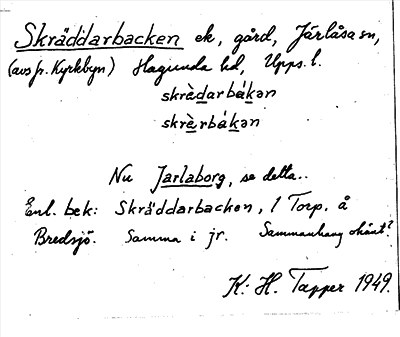 Skräddarbacken ek, gård, Järlåsa sn,
(avs fr. Kyrkbyn) Hagunda hd, Upps. l.
skrèdarbákən
skrèrbákən
Nu Jarlaborg, se detta..
Enl. bek: Skräddarbacken, 1 Torp. å
Bredsjö. Samma i jr. Sammanhang okänt?
K: H. Tapper 1949.